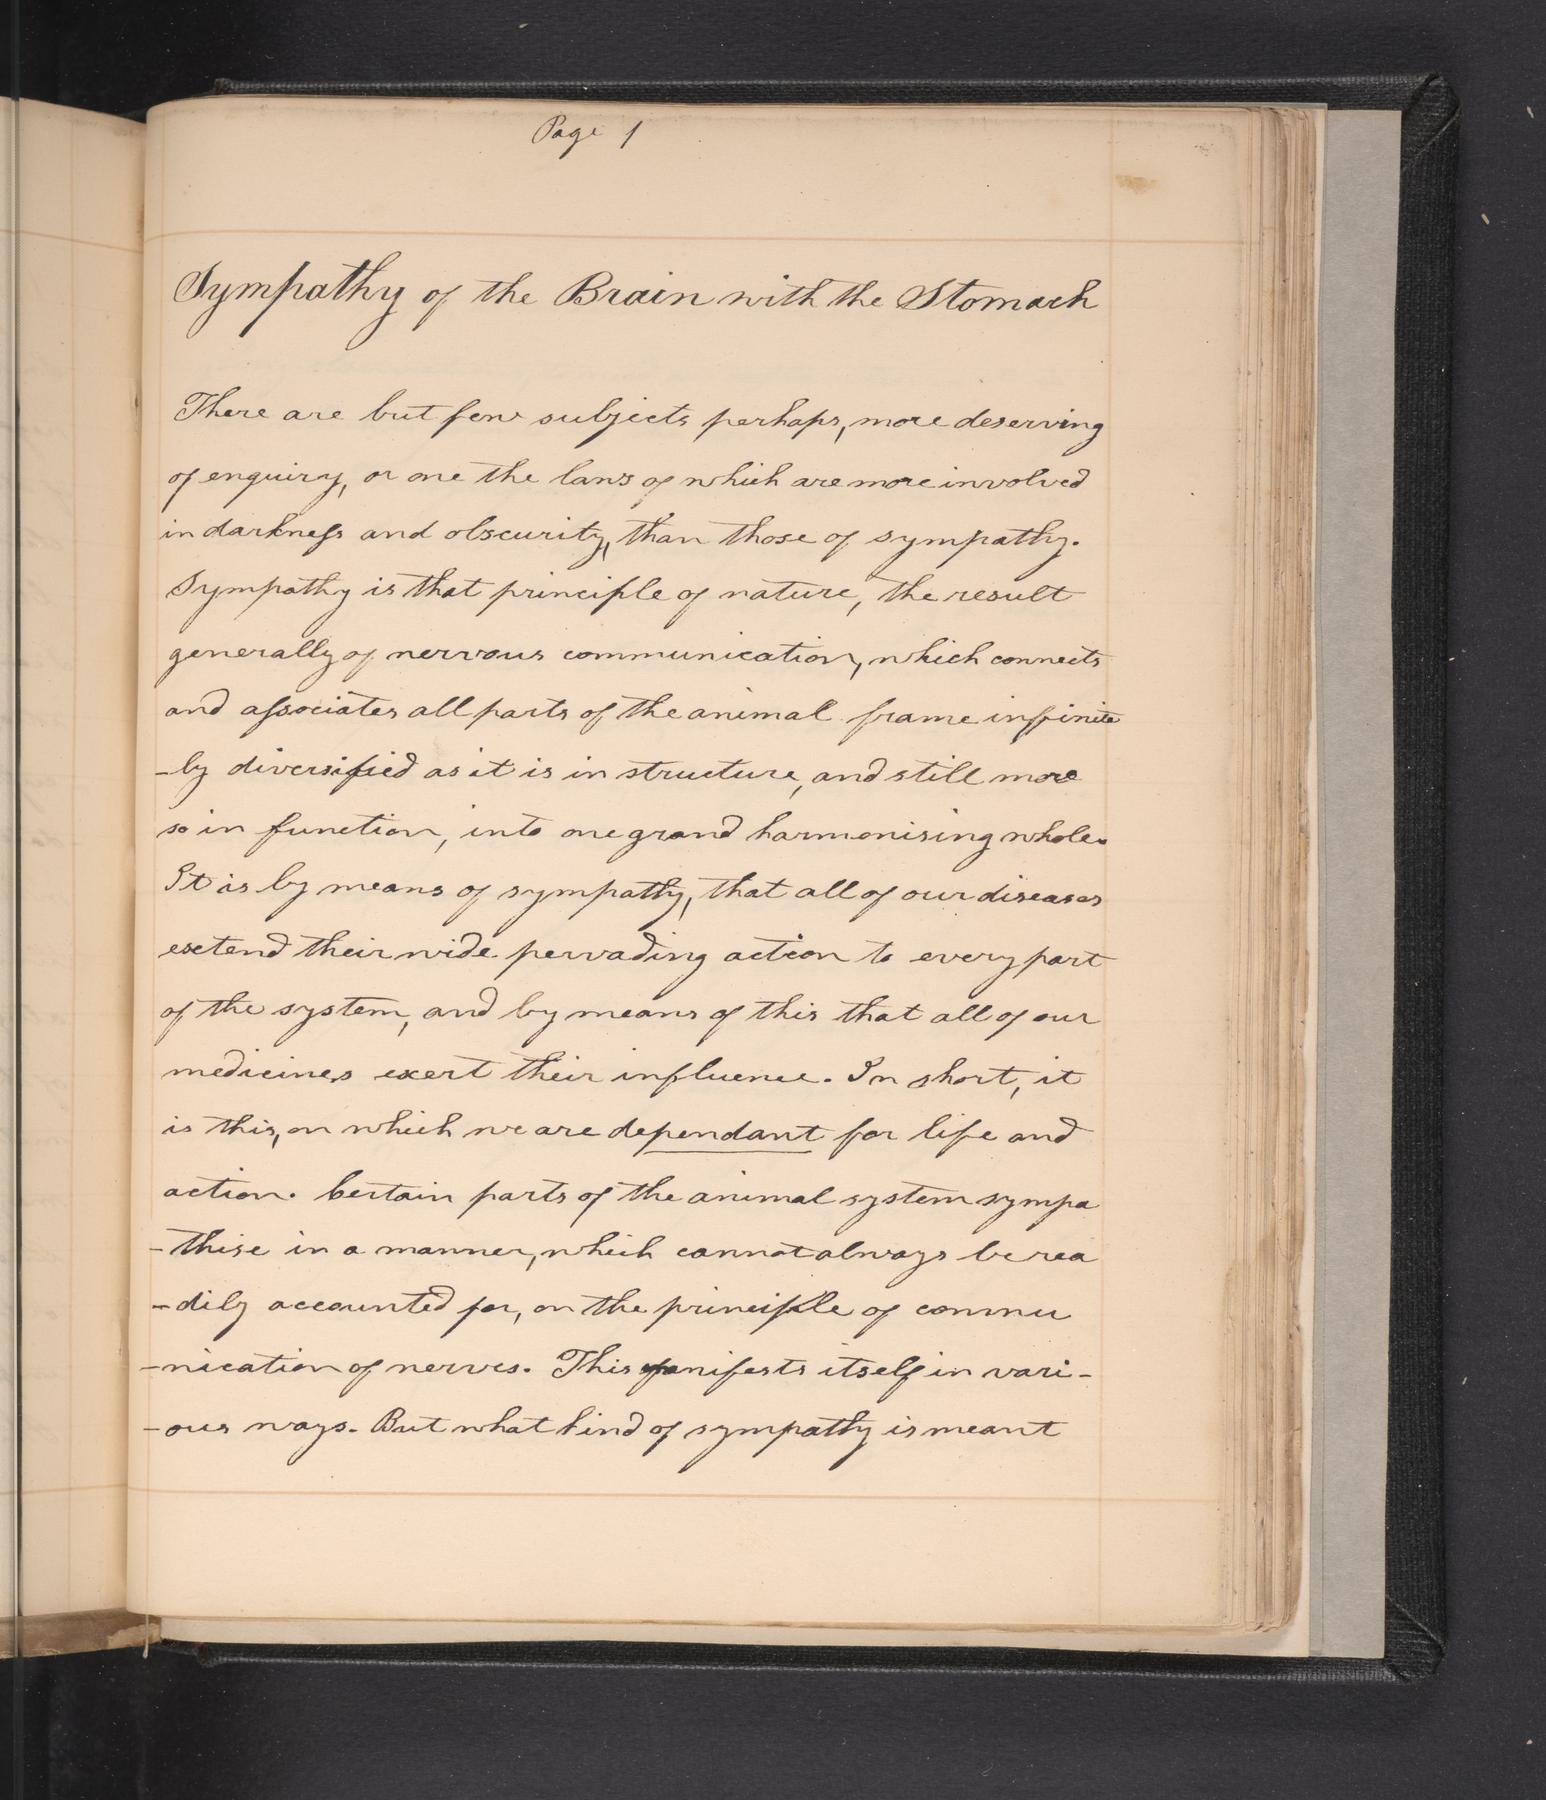 Page 1
Sympathy of the Brain with the Stomach
There are but few subjects perhaps, more deserving
of enquiry, or one the laws of which are more involved
in darkness and obscurity, than those of sympathy.
Sympathy is that principle of nature, the result
generally of nervous communication, which connects
and associates all parts of the animal frame infinite
-ly diversified as it is in structure, and still more
so in function, into one grand harmonising whole.
It is by means of sympathy, that all of our diseases
extend their wide pervading action to every part
of the system, and by means of this that all of our
medicines exert their influence. In short, it
is this, on which we are dependant for life and
action. Certain parts of the animal system sympa
-thise in a manner, which cannot always be rea
-dily accounted for, on the principle of commu
-nication of nerves. This manifests itself in vari-
-ous ways. But what kind of sympathy is meant